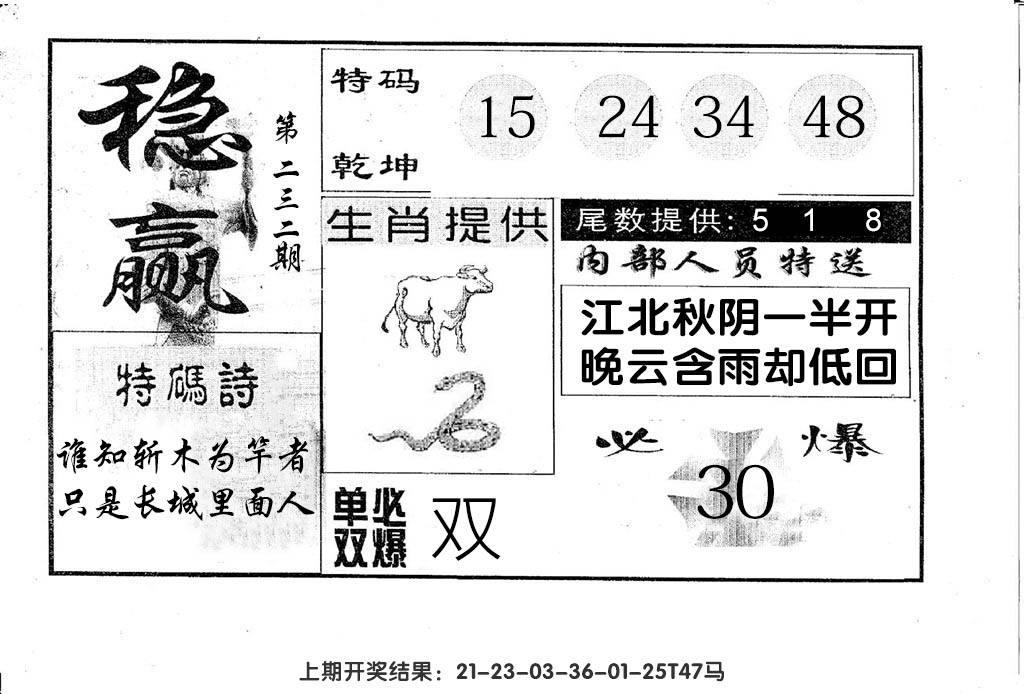 稳赢
第二三二期
特码
乾坤
15 24 34 48
生肖提供
尾数提供: 5 1 8
内部人员特送
江北秋阴一半开
晚云含雨却低回
特碼詩
谁知斩木为竿者
只是长城里面人
必爆
30
单双
必爆
双
上期开奖结果：21-23-03-36-01-25T47马